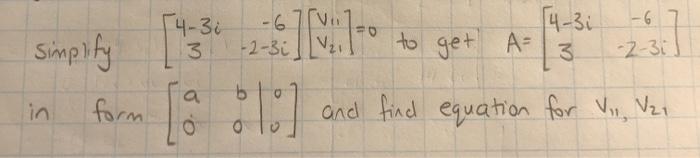 simplify [4-3i -6 3 -2-3i] [V11 V21] =0 to get A= [4-3i -6 3 -2-3i]
in form [a b | 0 0 0 | 0] and find equation for V11, V21